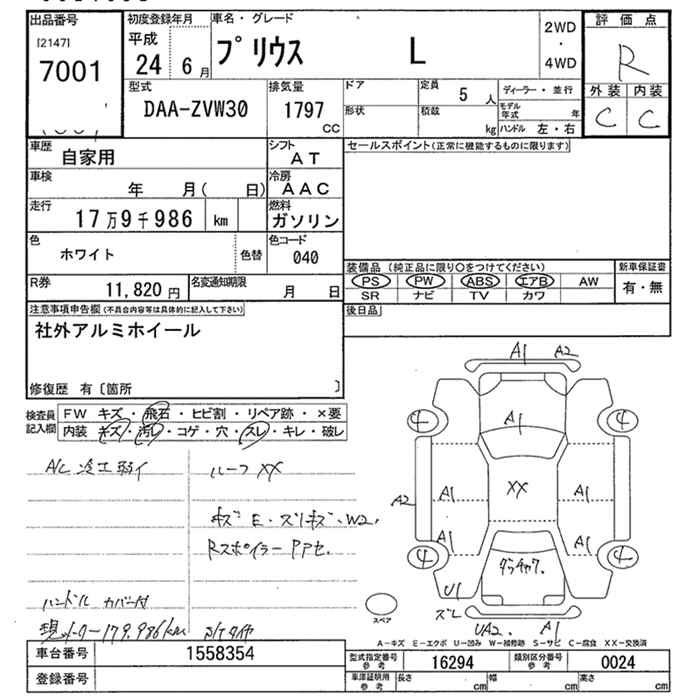 出品番号
[2147]
7001
初度登録年月
平成
24 6 月
車名・グレード
プリウス L
2WD
・
4WD
評価点
R
外装 内装
C C
型式
DAA-ZVW30
排気量
1797
CC
ドア
形状
定員
5 人
積載
kg
ディーラー・並行
モデル年式 年
ハンドル 左・右
車歴
自家用
シフト
AT
車検
年 月( 日)
冷房
AAC
走行
17万9千986 km
燃料
ガソリン
色
ホワイト
色替
色コード
040
R券
11,820 円
名変通知期限
月 日
セールスポイント(正常に機能するものに限ります)
装備品 (純正品に限り〇をつけてください)
新車保証書
PS PW ABS エアB AW
SR ナビ TV カワ
有・無
後日品
注意事項申告欄(不具合内容等は具体的に記入して下さい)
社外アルミホイール
修復歴 有〔箇所 〕
検査員
記入欄
FW キズ・飛石・ヒビ割・リペア跡・×要
内装 キズ・汚レ・コゲ・穴・スレ・キレ・破レ
A/C 冷エ弱イ
ルーフ XX
キズ E・スリキズ・W2,
Rスポイラー PPセ.
ハンドル カバー付
現メーター179,986km S/Tタイヤ
A1 A2
4 4
A1
A1 XX A1
A2
A1 A1
4 4
U1
スレ
UA2. A1
スペア
A-キズ E-エクボ U-凹み W-補修跡 S-サビ C-腐食 XX-交換済
車台番号
1558354
登録番号
型式指定番号
参考
16294
類別区分番号
参考
0024
車庫証明用
参考
長さ cm 幅 cm 高さ cm